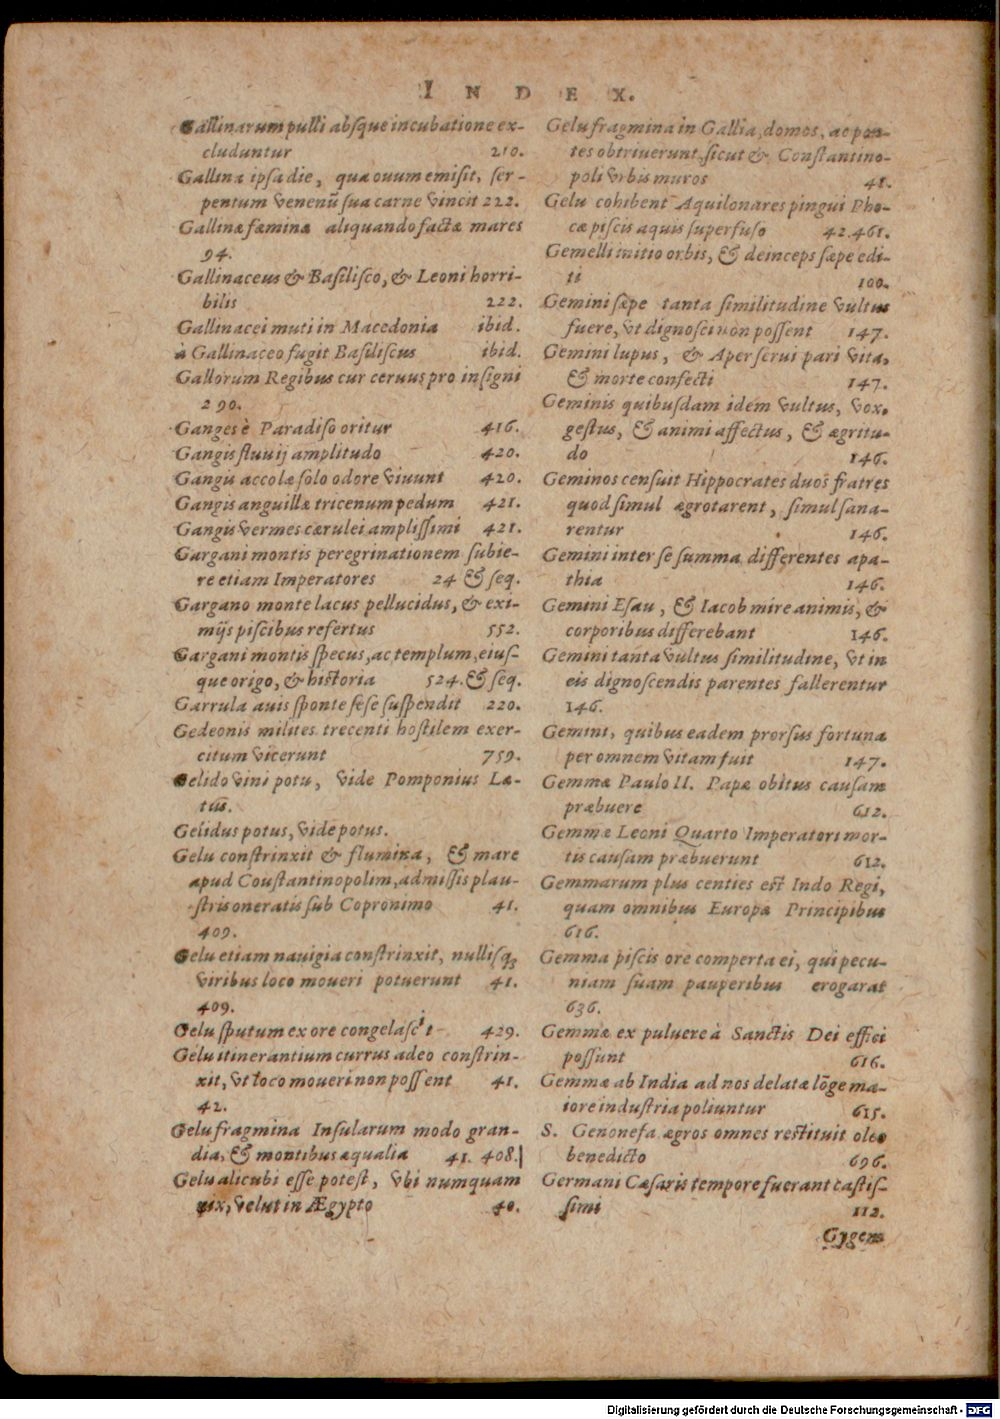 INDEX.
Gallinarum pulli absque incubatione ex-
cluduntur 210.
Gallina ipsa die, qua ouum emisit, ser-
pentum venenũ sua carne vincit 222.
Gallinæ fæminæ aliquando factæ mares
94.
Gallinaceus & Basilisco, & Leoni horri-
bilis 222.
Gallinacei muti in Macedonia ibid.
à Gallinaceo fugit Basiliscus ibid.
Gallorum Regibus cur ceruus pro insigni
290.
Ganges è Paradiso oritur 416.
Gangis fluuij amplitudo 420.
Gangis accolæ solo odore viuunt 420.
Gangis anguillæ tricenum pedum 421.
Gangis vermes cærulei amplissimi 421.
Gargani montis peregrinationem subie-
re etiam Imperatores 24 & seq.
Gargano monte lacus pellucidus, & exi-
mijs piscibus refertus 552.
Gargani montis specus, ac templum, eius-
que origo, & historia 524. & seq.
Garrula auis sponte sese suspendit 220.
Gedeonis milites trecenti hostilem exer-
citum vicerunt 759.
Gelido vini potu, vide Pomponius Læ-
tus.
Gelidus potus, vide potus.
Gelu constrinxit & flumina, & mare
apud Coustantinopolim, admissis plau-
stris oneratis sub Copronimo 41.
409.
Gelu etiam nauigia constrinxit, nullisq;
viribus loco moueri potuerunt 41.
409.
Gelu sputum ex ore congelascit 429.
Gelu itinerantium currus adeo constrin-
xit, vt loco moueri non possent 41.
42.
Gelu fragmina Insularum modo gran-
dia, & montibus æqualia 41. 408.
Gelu alicubi esse potest, vbi numquam
nix, velut in Ægypto 40.
Gelu fragmina in Gallia, domos, ac pon-
tes obtriuerunt, sicut & Constantino-
poli vrbis muros 41.
Gelu cohibent Aquilonares pingui Pho-
cæ piscis aquis superfuso 42.461.
Gemelli initio orbis, & deinceps sæpe edi-
ti 100.
Gemini sæpe tanta similitudine vultus
fuere, vt dignosci non possent 147.
Gemini lupus, & Aper serui pari vita,
& morte confecti 147.
Geminis quibusdam idem vultus, vox,
gestus, & animi affectus, & ægritu-
do 146.
Geminos censuit Hippocrates duos fratres
quod simul ægrotarent, simul sana-
rentur 146.
Gemini inter se summa differentes apa-
thia 146.
Gemini Esau, & Iacob mire animis, &
corporibus differebant 146.
Gemini tanta vultus similitudine, vt in
eis dignoscendis parentes fallerentur
146.
Gemini, quibus eadem prorsus fortuna
per omnem vitam fuit 147.
Gemmæ Paulo II. Papæ obitus causam
præbuere 612.
Gemmæ Leoni Quarto Imperatori mor-
tis causam præbuerunt 612.
Gemmarum plus centies est Indo Regi,
quam omnibus Europæ Principibus
616.
Gemma piscis ore comperta ei, qui pecu-
niam suam pauperibus erogarat
636.
Gemmæ ex puluere à Sanctis Dei effici
possunt 616.
Gemmæ ab India ad nos delatæ lõge ma-
iore industria poliuntur 615.
S. Genonefa ægros omnes restituit oleo
benedicto 696.
Germani Cæsaris tempore fuerant castis-
simi 112.
Gygem
Digitalisierung gefördert durch die Deutsche Forschungsgemeinschaft - DFG